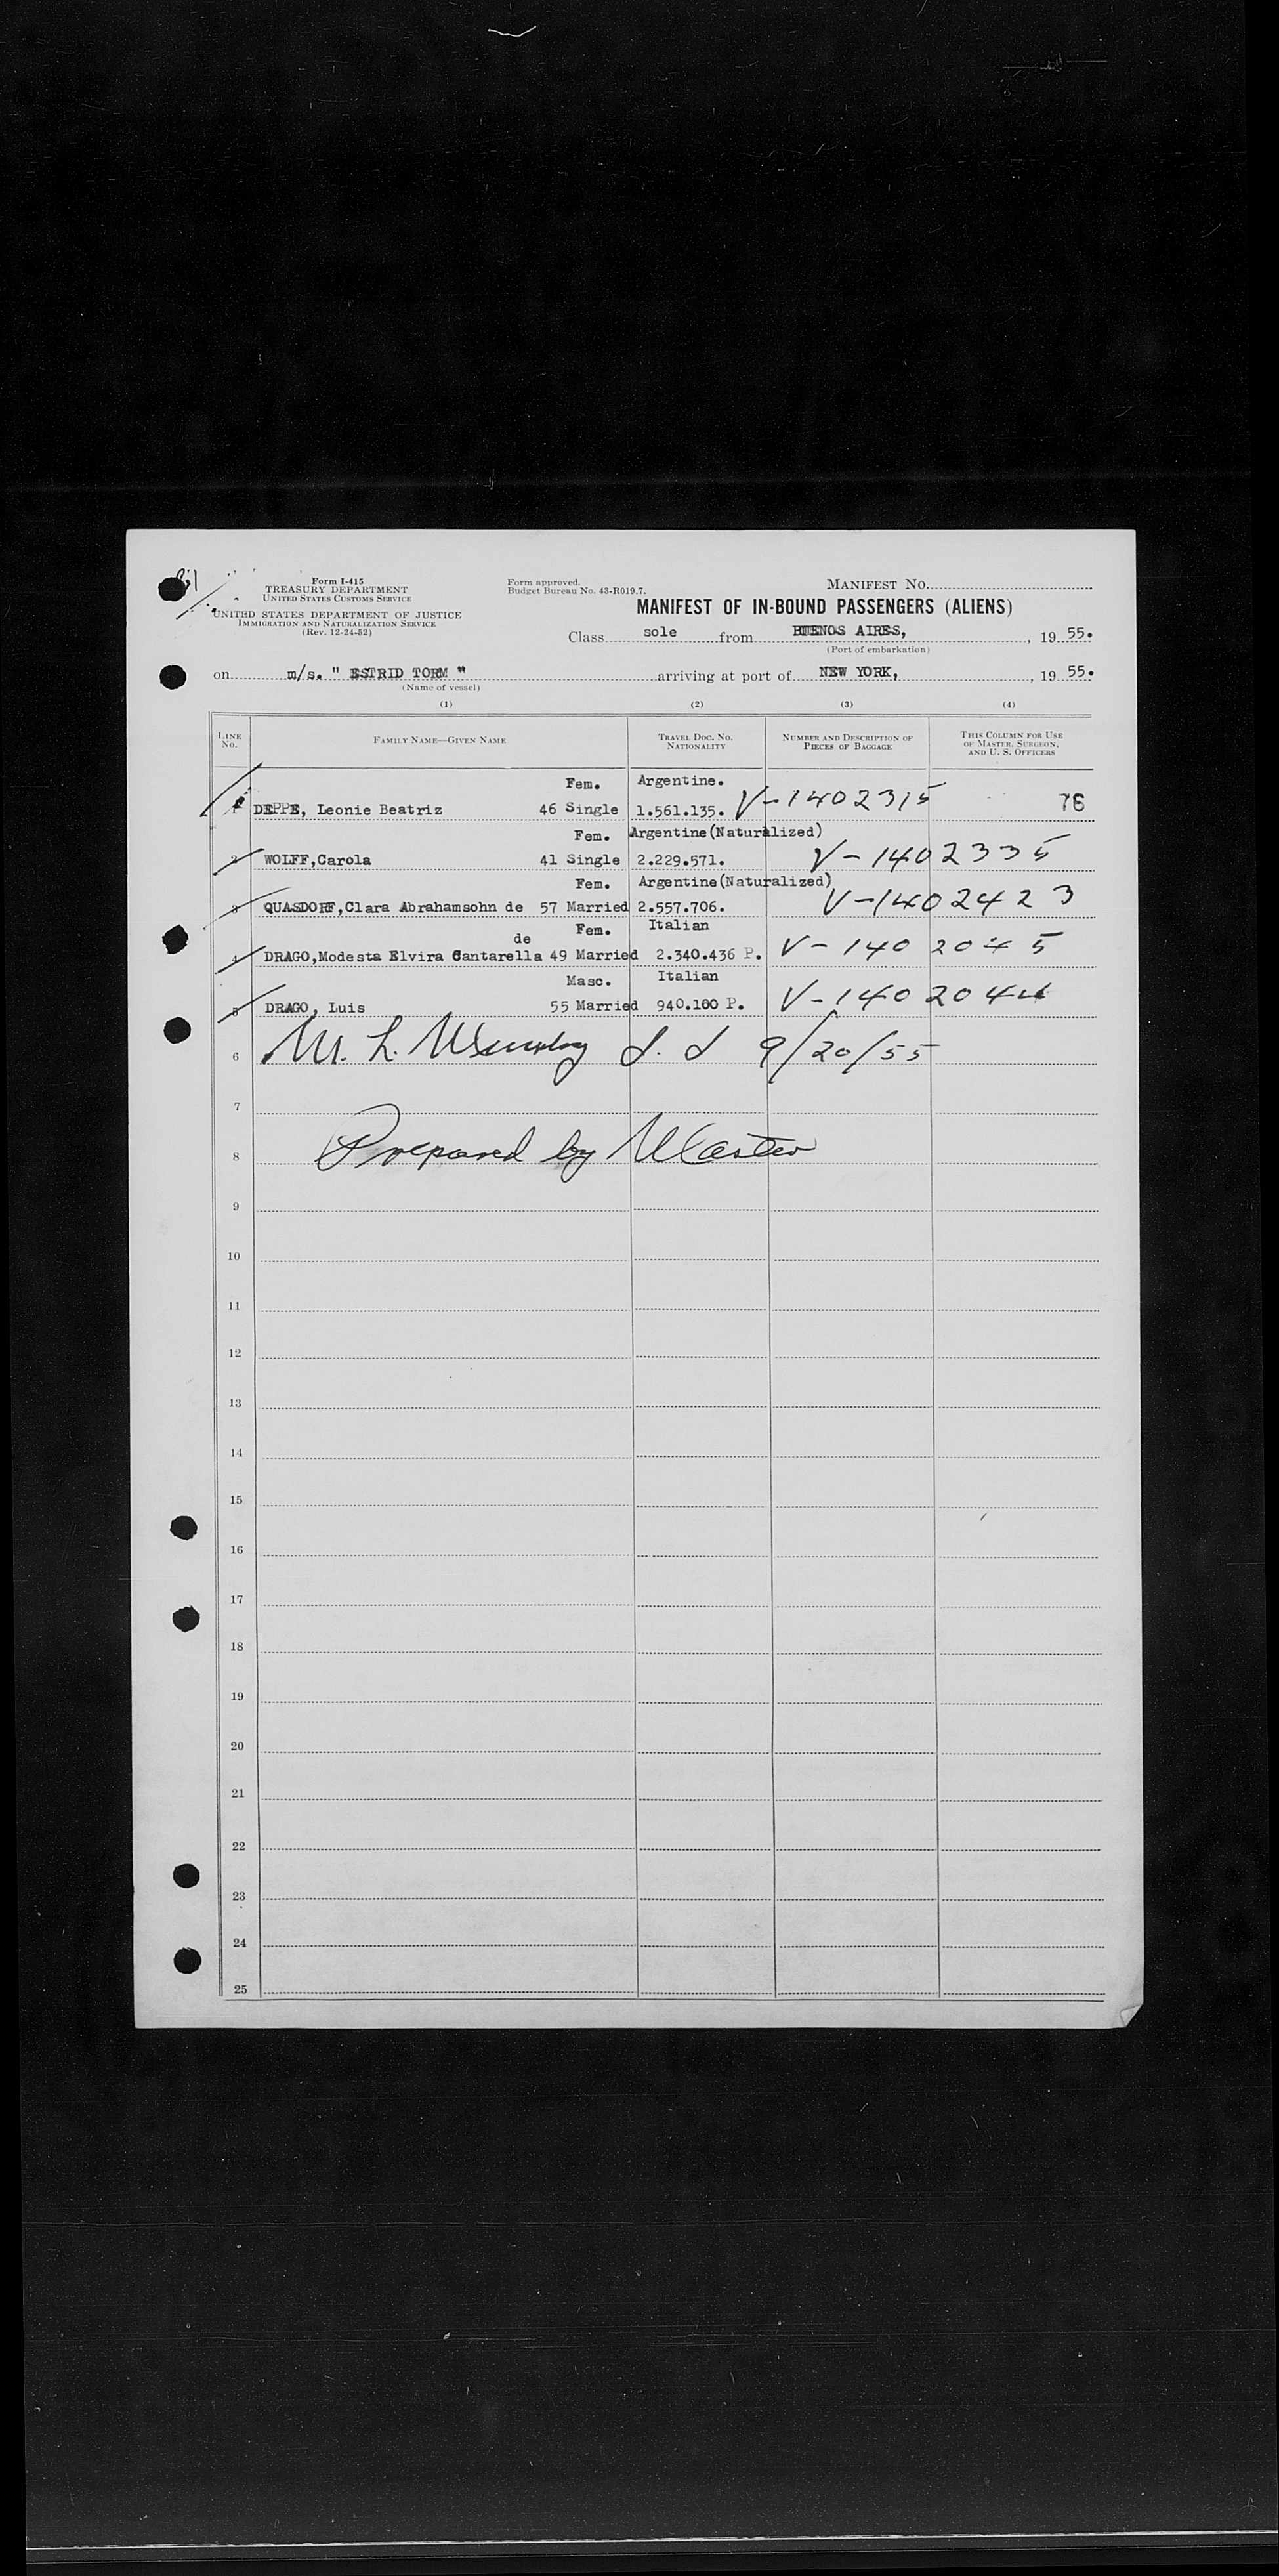 Form I-415
TREASURY DEPARTMENT
UNITED STATES CUSTOMS SERVICE
UNITED STATES DEPARTMENT OF JUSTICE
IMMIGRATION AND NATURALIZATION SERVICE
(Rev. 12-24-52)
Form approved.
Budget Bureau No. 43-R019.7.
MANIFEST NO.
MANIFEST OF IN-BOUND PASSENGERS (ALIENS)
Class sole from BUENOS AIRES, , 19 55.
(Port of embarkation)
on m/s. " ESTRID TORM " arriving at port of NEW YORK, , 19 55.
(Name of vessel)
(1) (2) (3) (4)
LINE NO. FAMILY NAME—GIVEN NAME TRAVEL DOC. NO. NATIONALITY NUMBER AND DESCRIPTION OF PIECES OF BAGGAGE THIS COLUMN FOR USE OF MASTER, SURGEON, AND U. S. OFFICERS
Fem. Argentine.
1 DEPPE, Leonie Beatriz 46 Single 1.561.135. V-1402315 76
Fem. Argentine(Naturalized)
2 WOLFF,Carola 41 Single 2.229.571. V-1402335
Fem. Argentine(Naturalized)
3 QUASDORF,Clara Abrahamsohn de 57 Married 2.557.706. V-1402423
de Fem. Italian
4 DRAGO,Modesta Elvira Cantarella 49 Married 2.340.436 P. V-1402045
Masc. Italian
5 DRAGO, Luis 55 Married 940.100 P. V-1402044
6 M. L. 9/20/55
7
8 Prepared by Master
9
10
11
12
13
14
15
16
17
18
19
20
21
22
23
24
25